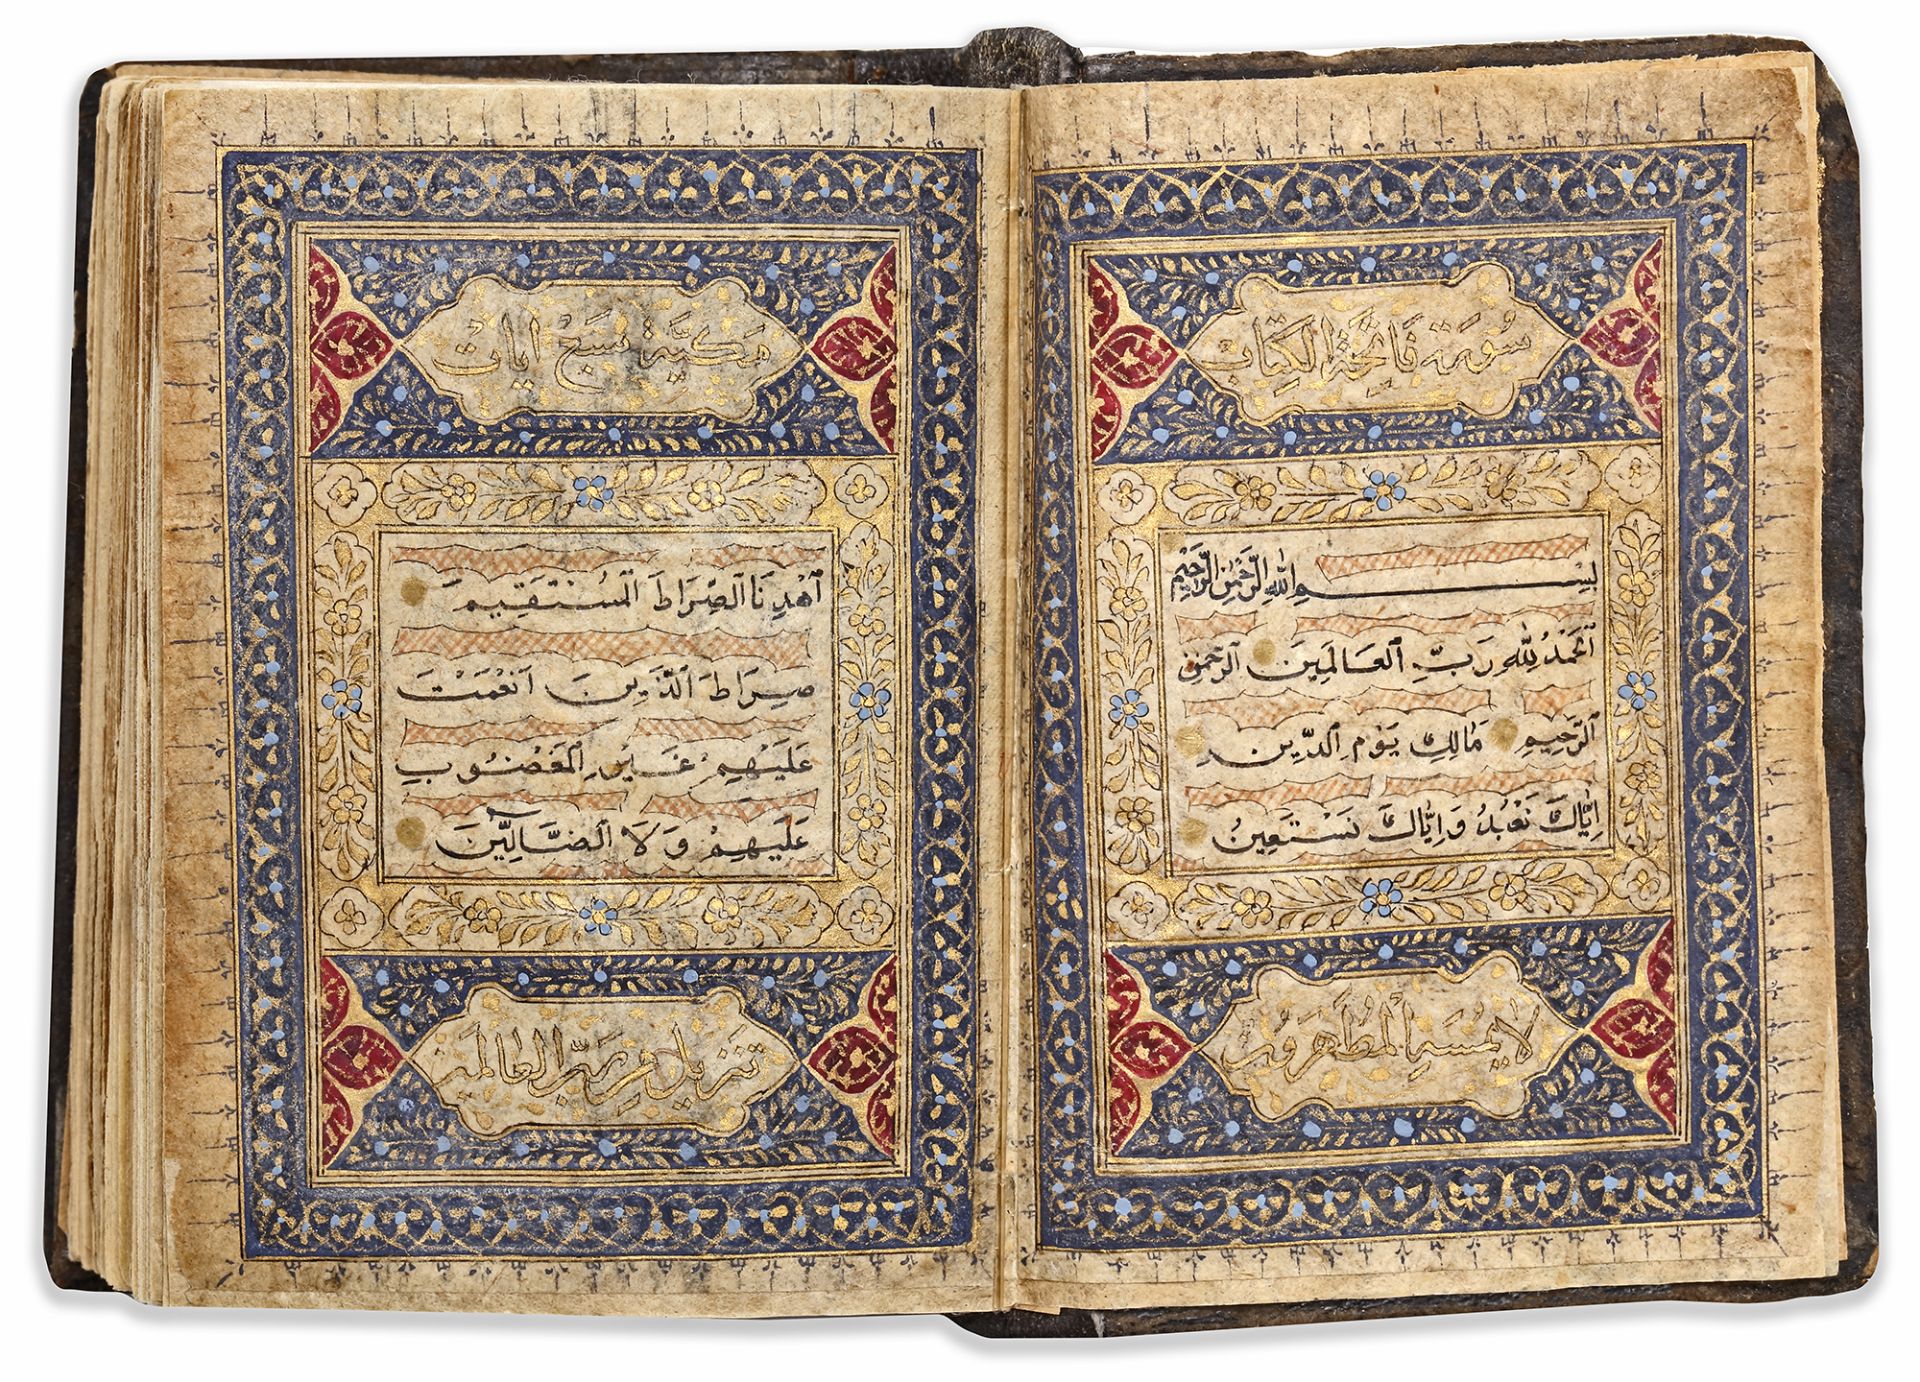 سُورَة فَاتِحَة الكِتَاب
بِسْمِ اللهِ الرَّحْمٰنِ الرَّحِيْمِ
اَلْحَمْدُ لِلّٰهِ رَبِّ الْعَالَمِيْنَ الرَّحْمٰنِ
الرَّحِيْمِ مَالِكِ يَوْمِ الدِّيْنِ
اِيَّاكَ نَعْبُدُ وَاِيَّاكَ نَسْتَعِيْنُ
لَا يَمَسُّهُ اِلَّا الْمُطَهَّرُونَ
مَكِّيَّة سَبْعُ اٰيَات
اِهْدِنَا الصِّرَاطَ الْمُسْتَقِيْمَ
صِرَاطَ الَّذِيْنَ اَنْعَمْتَ
عَلَيْهِمْ غَيْرِ الْمَغْضُوْبِ
عَلَيْهِمْ وَلَا الضَّآلِّيْنَ
تَنْزِيلٌ مِنْ رَبِّ الْعَالَمِينَ